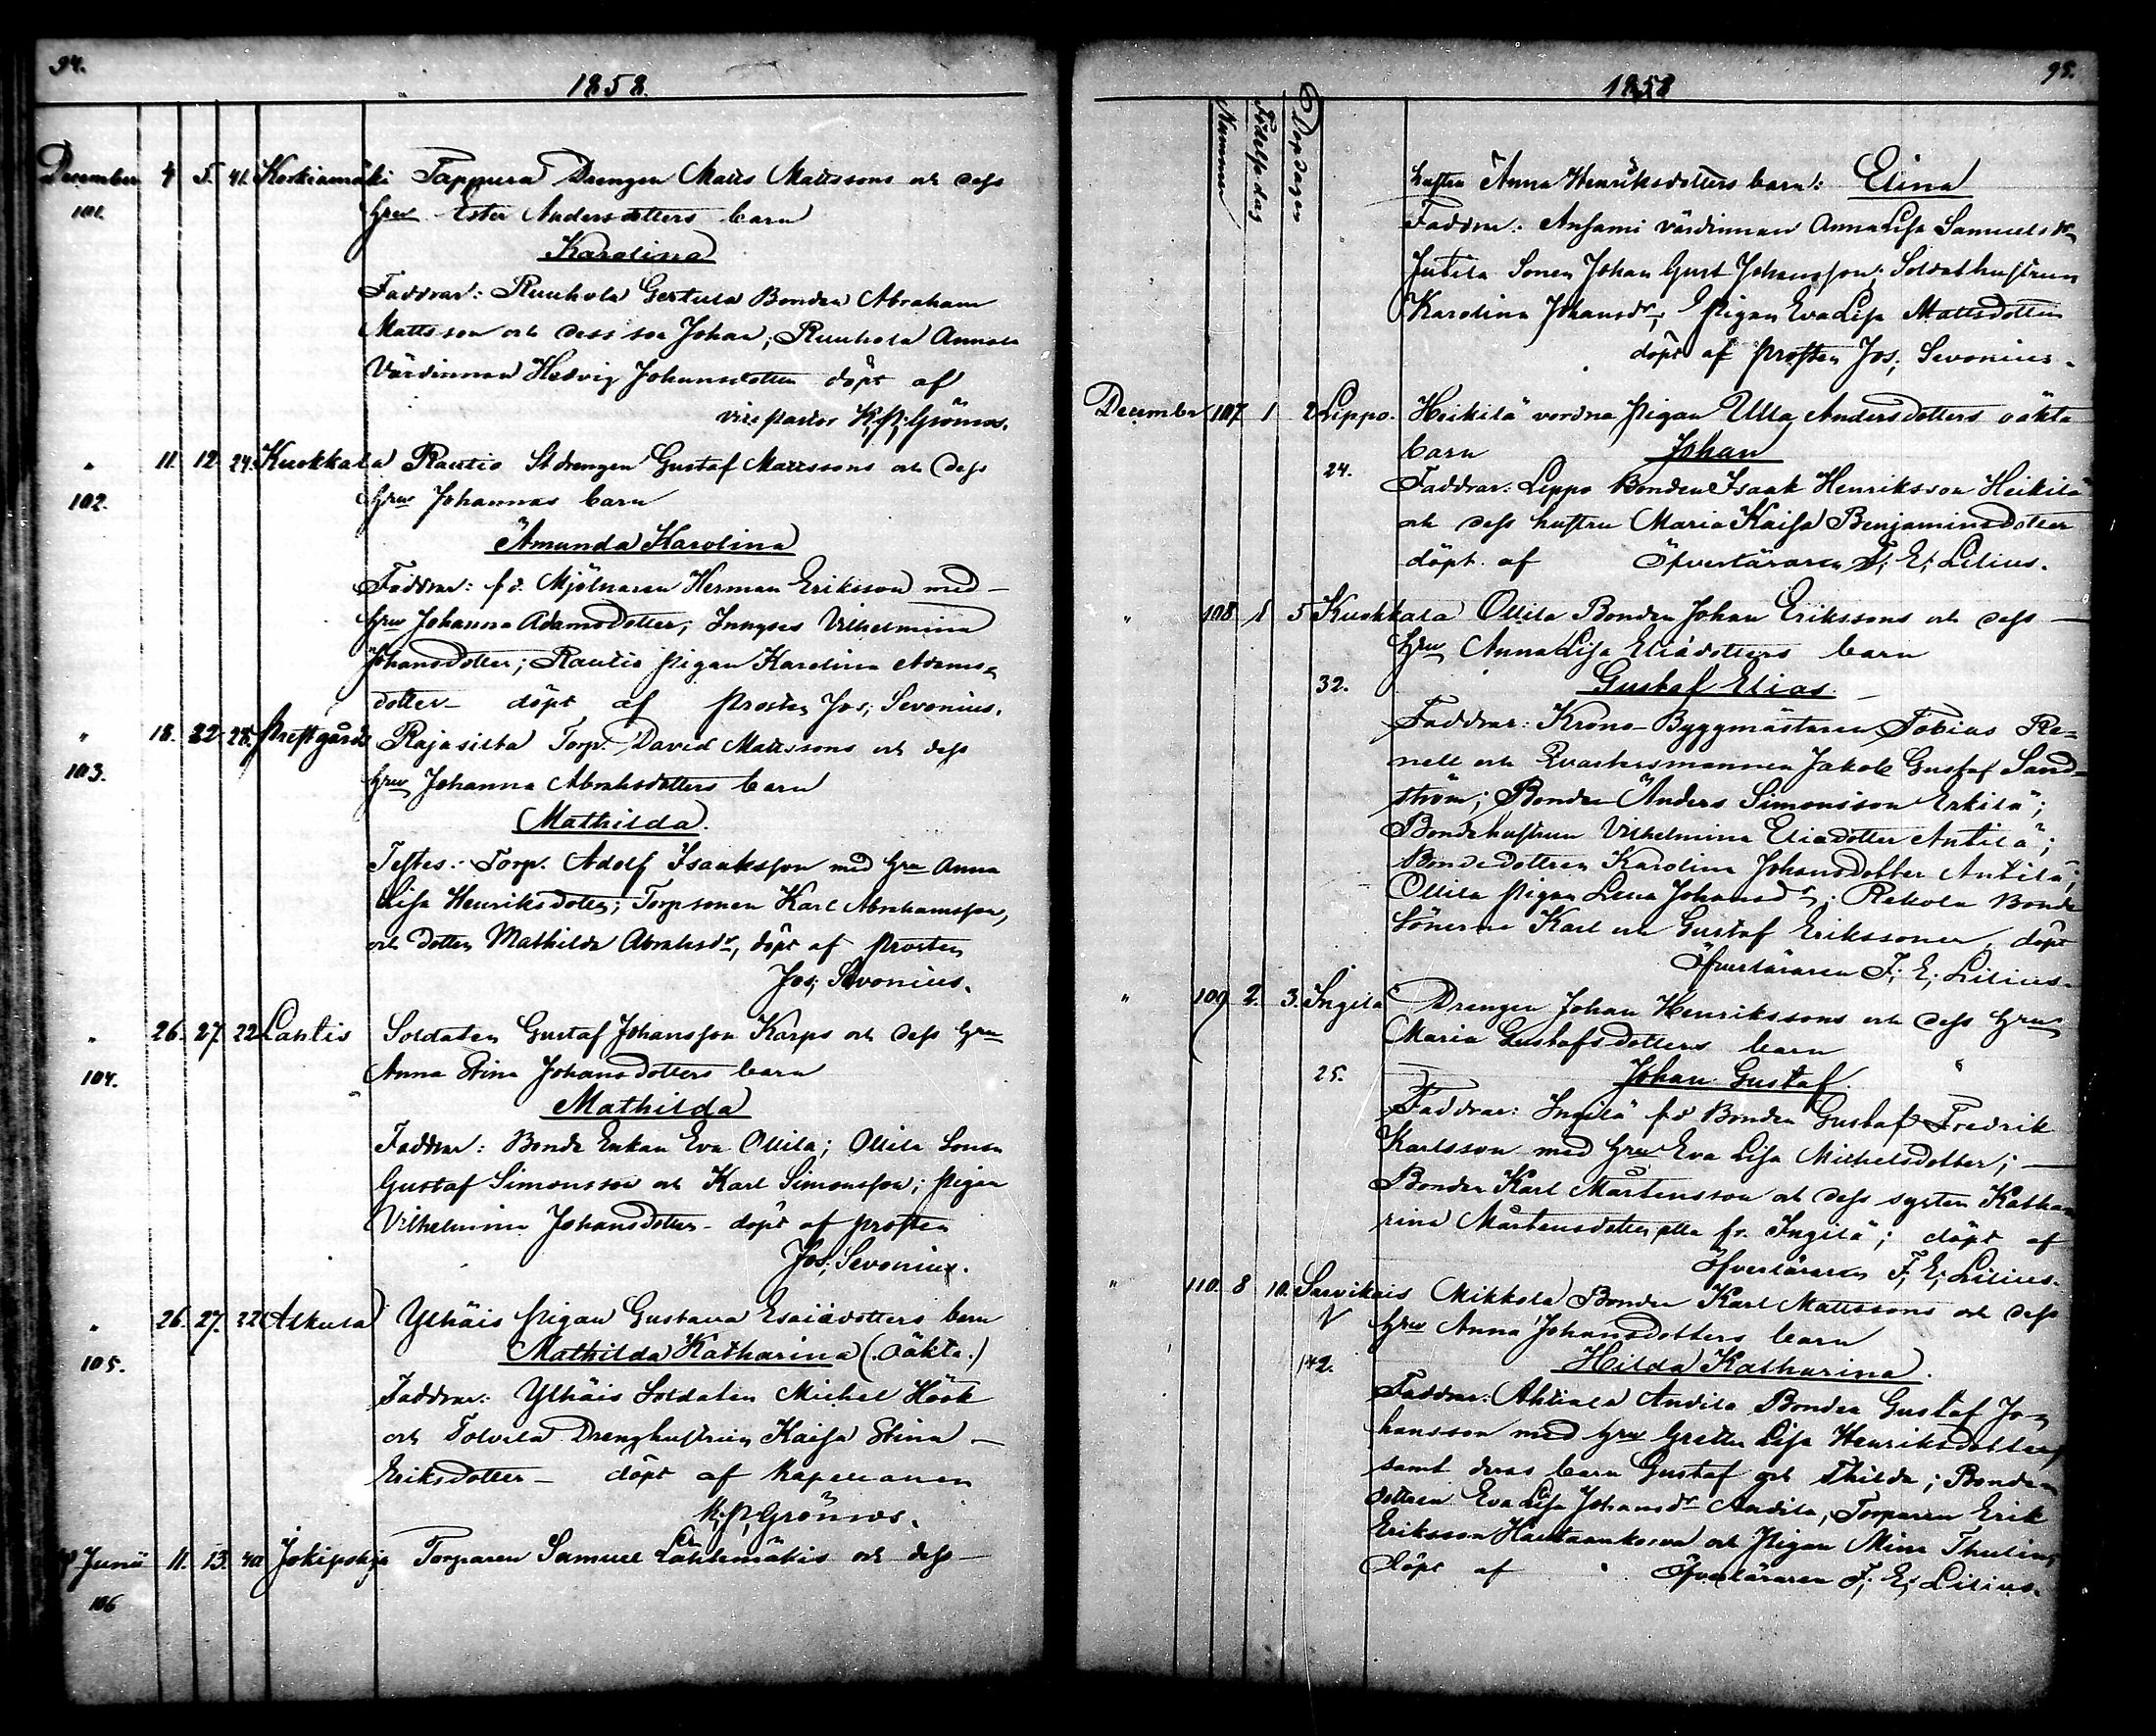 94.
1858.
December 4 5. 41. Korkiamäki Tappura Drengen Matts Mattssons och dess
101. hru Ester Andersdotters barn
Karolina
Faddrar: Ruuhola Gertula Bonden Abraham
Mattsson och dess son Johan; Ruuhola Annola
Värdinnan Hedvig Johansdotter döpt af
vice pastor K. P. Grönroos.
" 11. 12 24. Kuokkala Rautio Stdrengen Gustaf Mattssons och dess
102. hru Johannas barn
Amanda Karolina
Faddrar: f.d. Mjölnaren Herman Eriksson med
hru Johanna Adamsdotter; Inhyses Vilhelmina
Johansdotter; Rautio pigan Karolina Adams-
dotter döpt af prosten Jos; Sevonius.
" 18. 22 28. Prestgårds Rajasilta Torp. David Mattssons och dess
103. hru Johanna Abrahsdotters barn
Mathilda.
Testes: Torp. Adolf Isaaksson med hru Anna
Lisa Henriksdotter; Torpsonen Karl Abrahamsson,
och dottren Mathilda Abrahsdr, döpt af prosten
Jos; Sevonius.
" 26. 27. 22 Lahtis Soldaten Gustaf Johansson Karps och dess hru
104. Anna Stina Johansdotters barn
Mathilda
Faddrar: Bonde Enkan Eva Ollila; Ollila Sonen
Gustaf Simonsson och Karl Simonsson; pigan
Vilhelmina Johansdotter döpt af prosten
Jos; Sevonius.
" 26. 27. 22 Alkula Ylhäis pigan Gustava Esaiædotters barn
105. Mathilda Katharina (Oäkta.)
Faddrar: Ylhäis Soldaten Michel Höök
och Tolvila Drenghustrun Kaisa Stina
Eriksdotter döpt af kapellanen
K. P. Grönroos.
Junii 11. 13. 40 Jokipohja Torparen Samuel Lahtemäkis och dess
106

95.
1858
Nummer Födelsedag Dopdagen
hustru Anna Henriksdotters barn: Elina
Faddrar: Ansami värdinnan Anna Lisa Samuelsdr
Jutila Sonen Johan Gust Johansson; Soldathustrun
Karolina Johansdr; pigan Eva Lisa Mattsdotter
döpt af prosten Jos; Sevonius.
December 107 1 2 Leppo. Heikilä vordna pigan Ulla Andersdotters oäkta
barn Johan
24. Faddrar: Leppo Bonden Isaak Henriksson Heikilä
och dess hustru Maria Kaisa Benjaminsdotter
döpt af Öfverläraren F; E; Lilius.
" 108 1 5 Kuokkala Ollila Bonden Johan Erikssons och dess
hru Anna Lisa Eliædotters barn
32. Gustaf Elias.
Faddrar: Krono-Byggmästaren Tobias Re-
nell och Qvartersmannen Jakob Gustaf Sand-
ström; Bonden Anders Simonsson Erkilä;
Bondehustrun Vilhelmina Eliædotter Antila;
Bondedottren Karolina Johansdotter Antila;
Ollila pigan Lena Johansdr; Rekola Bonde
Sönerne Karl och Gustaf Erikssoner, döpt
Öfverläraren F; E; Lilius.
" 109 2. 3. Ingilä Drengen Johan Henrikssons och dess hru
Maria Gustafsdotters barn
25. Johan Gustaf.
Faddrar: Ingilä f.d. Bonden Gustaf Fredrik
Karlsson med hru Eva Lisa Michelsdotter;
Bonden Karl Mårtensson och dess syster Katha-
rina Mårtensdotter alla fr. Ingilä; döpt af
Öfverläraren F; E; Lilius.
" 110. 8 10. Sarvikais Mikkola Bonden Karl Mattssons och dess
V hru Anna Johansdotters barn
142. Hilda Katharina.
Faddrar: Ahtiala Andila Bonden Gustaf Jo-
hansson med hru Gretta Lisa Henriksdotter,
samt deras barn Gustaf och Thilda; Bonde-
dottren Eva Lisa Johansdr Andila, Torparen Erik
Eriksson och Pigan Mina Thulin,
döpt af Öfverläraren F; E; Lilius.